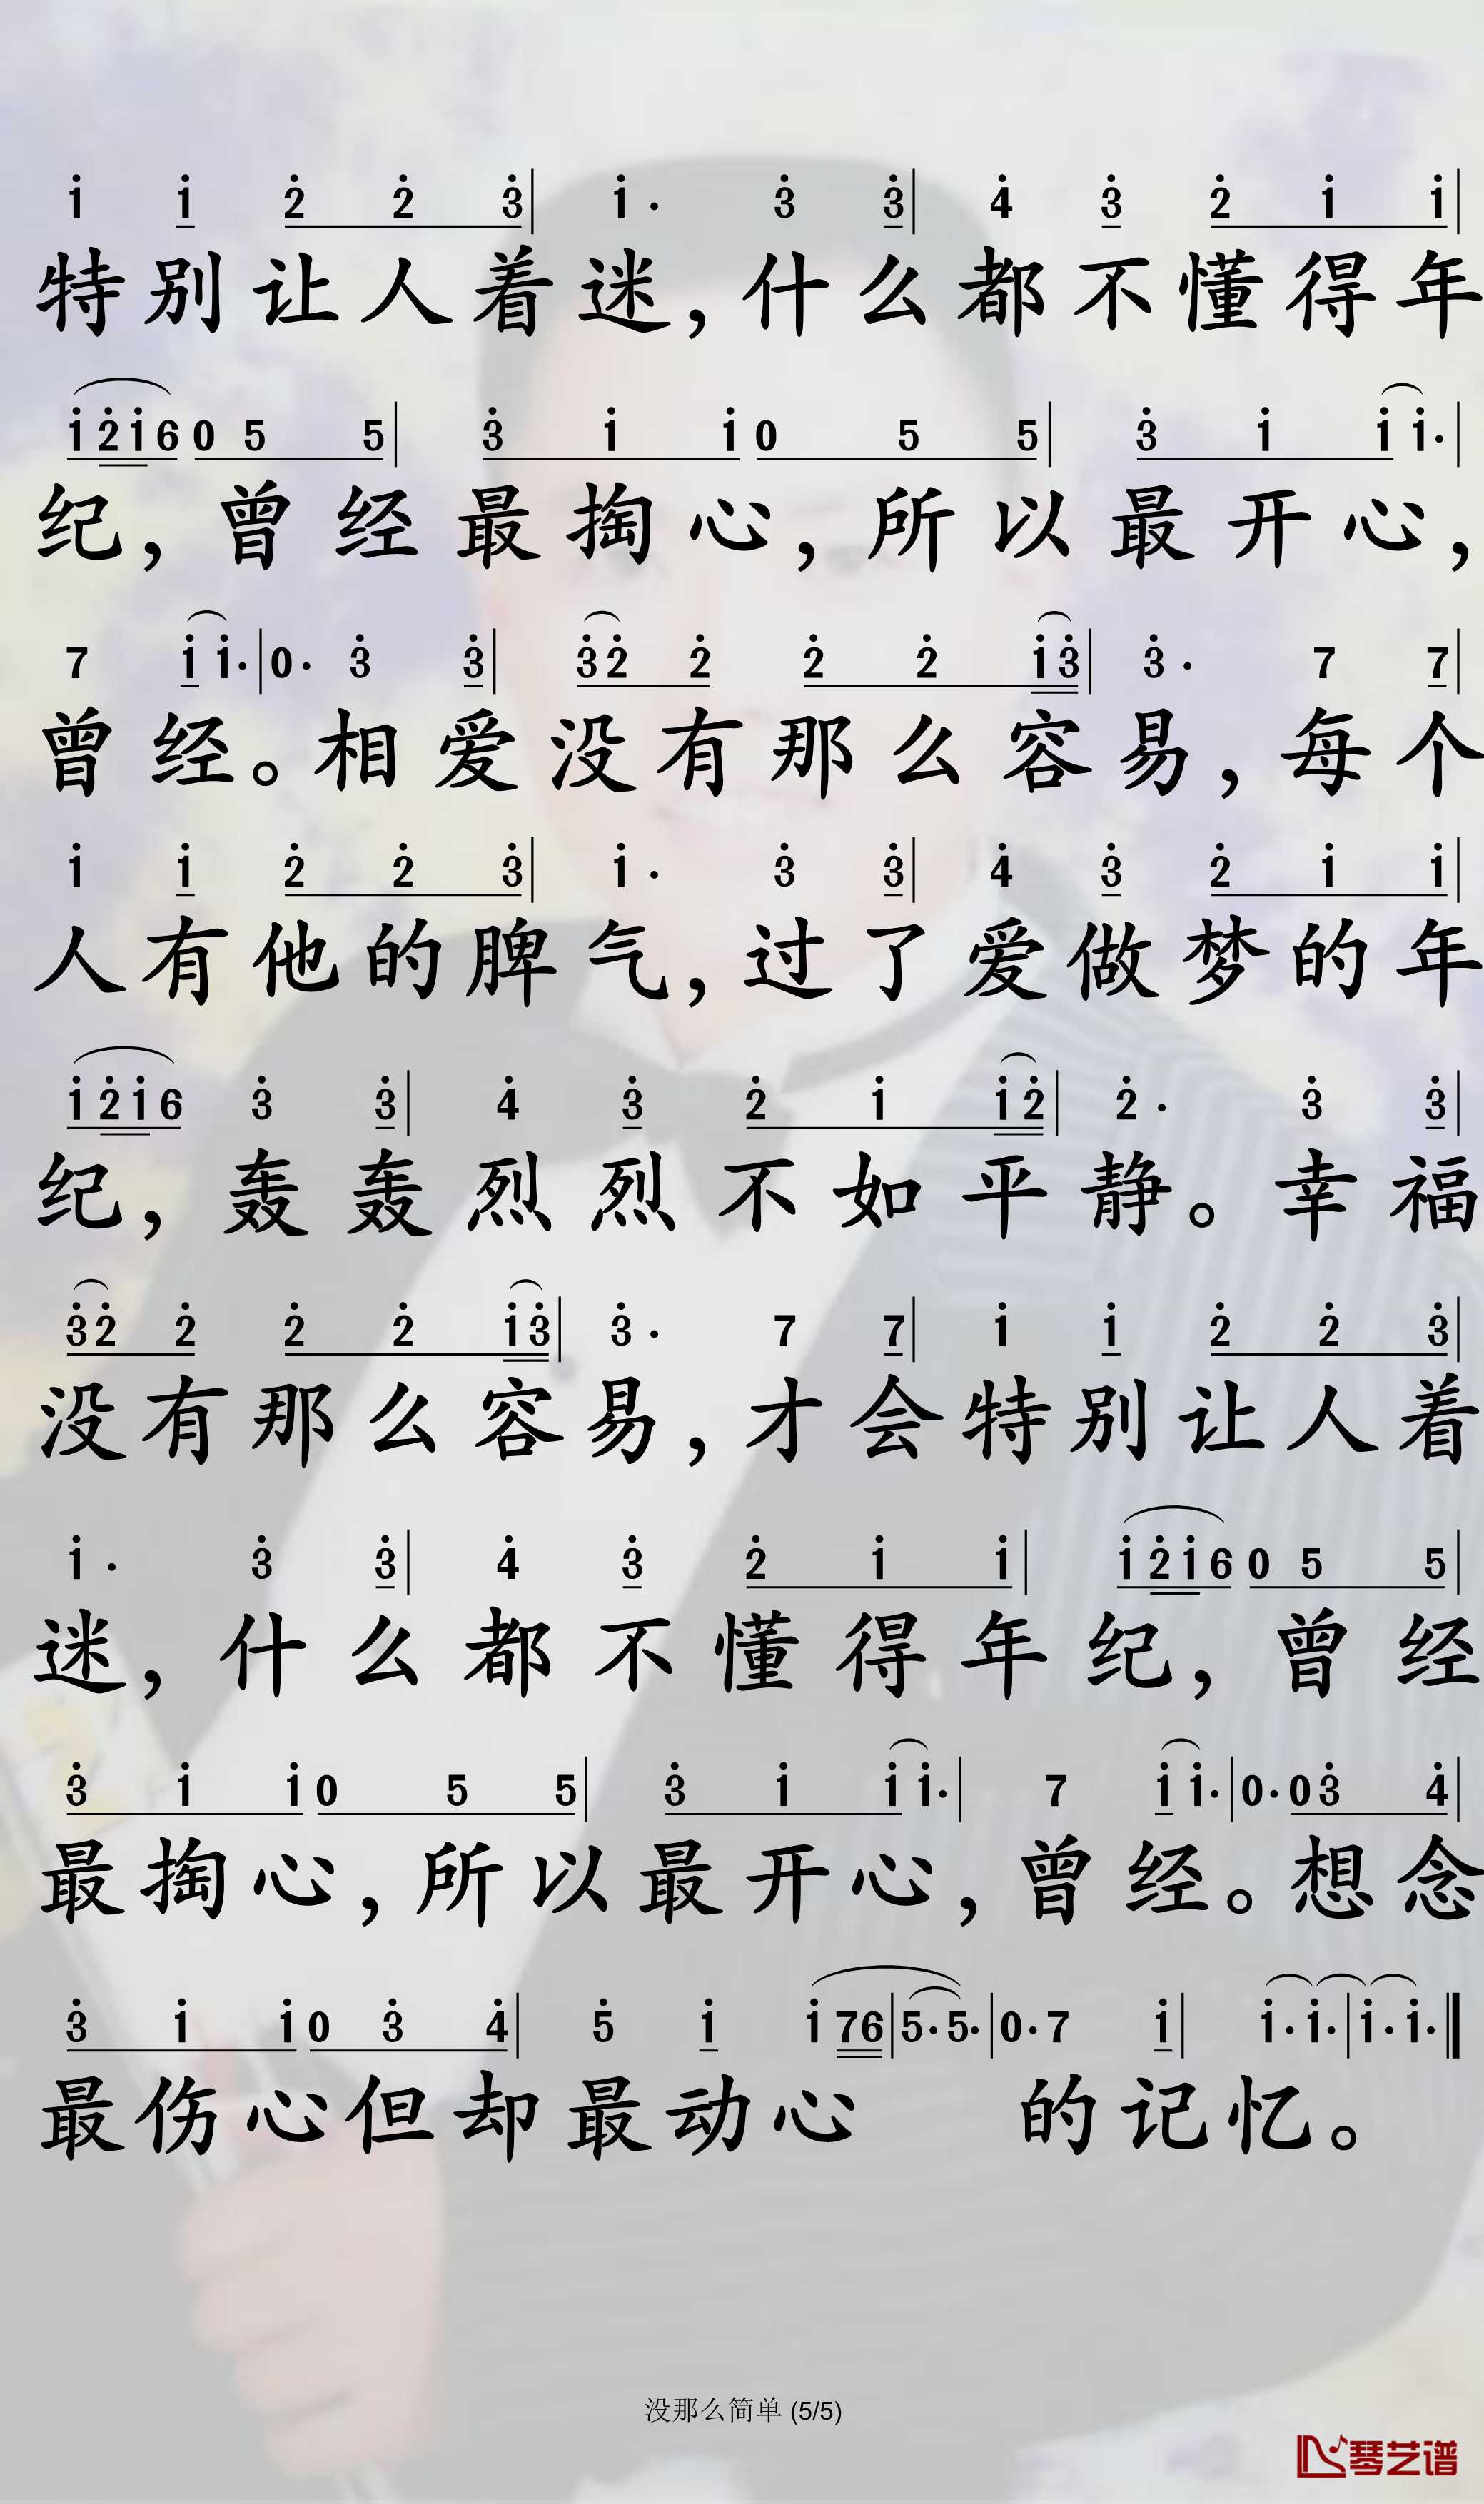 1 1 2 2 3 | 1 · 3 3 | 4 3 2 1 1 |
特别让人着迷,什么都不懂得年
1 2 1 6 0 5 5 | 3 1 1 0 5 5 | 3 1 1 1 · |
纪,曾经最掏心,所以最开心,
7 1 1 · | 0 · 3 3 | 3 2 2 2 2 1 3 | 3 · 7 7 |
曾经。相爱没有那么容易,每个
1 1 2 2 3 | 1 · 3 3 | 4 3 2 1 1 |
人有他的脾气,过了爱做梦的年
1 2 1 6 3 3 | 4 3 2 1 1 2 | 2 · 3 3 |
纪,轰轰烈烈不如平静。幸福
3 2 2 2 2 1 3 | 3 · 7 7 | 1 1 2 2 3 |
没有那么容易,才会特别让人着
1 · 3 3 | 4 3 2 1 1 | 1 2 1 6 0 5 5 |
迷,什么都不懂得年纪,曾经
3 1 1 0 5 5 | 3 1 1 1 · | 7 1 1 · | 0 · 0 3 4 |
最掏心,所以最开心,曾经。想念
3 1 1 0 3 4 | 5 1 1 7 6 | 5 · 5 · | 0 · 7 1 | 1 · 1 · | 1 · 1 · ‖
最伤心但却最动心 的记忆。
没那么简单 (5/5)
琴艺谱